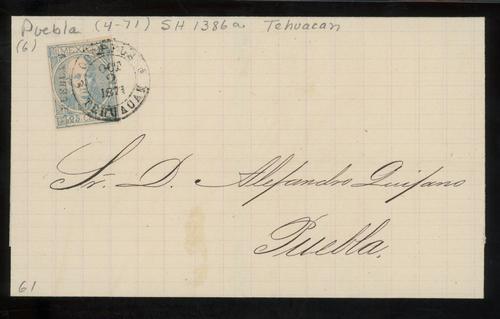 Puebla (4-71) SH 1386a Tehuacan
(6)
MEXICO
PUEBLA
CORREOS
OCT
2
1871
TEHUACAN
Sr. D. Alejandro Quijano
Puebla.
61